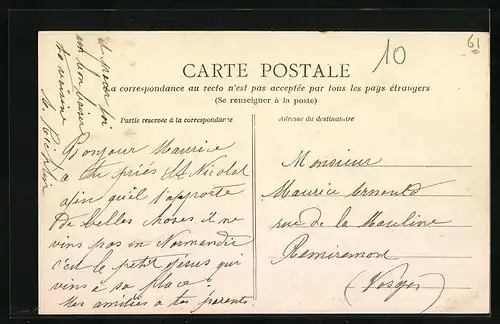 10
61
CARTE POSTALE
La correspondance au recto n'est pas acceptée par tous les pays étrangers
(Se renseigner à la poste)
Partie reservée à la correspondance
Adresse du destinataire
Bonjour Maurice
a tu priés St Nicolas
afin qu'il t'apporte
de belles choses il ne
vins pas en Normandie
c'en le petit Jésus qui
vins à sa place!
Mes amitiés à tes parents
un bon baiser
ta cousine
Monsieur
Maurice
rue de la Mouline
Remiremont
(Vosges)